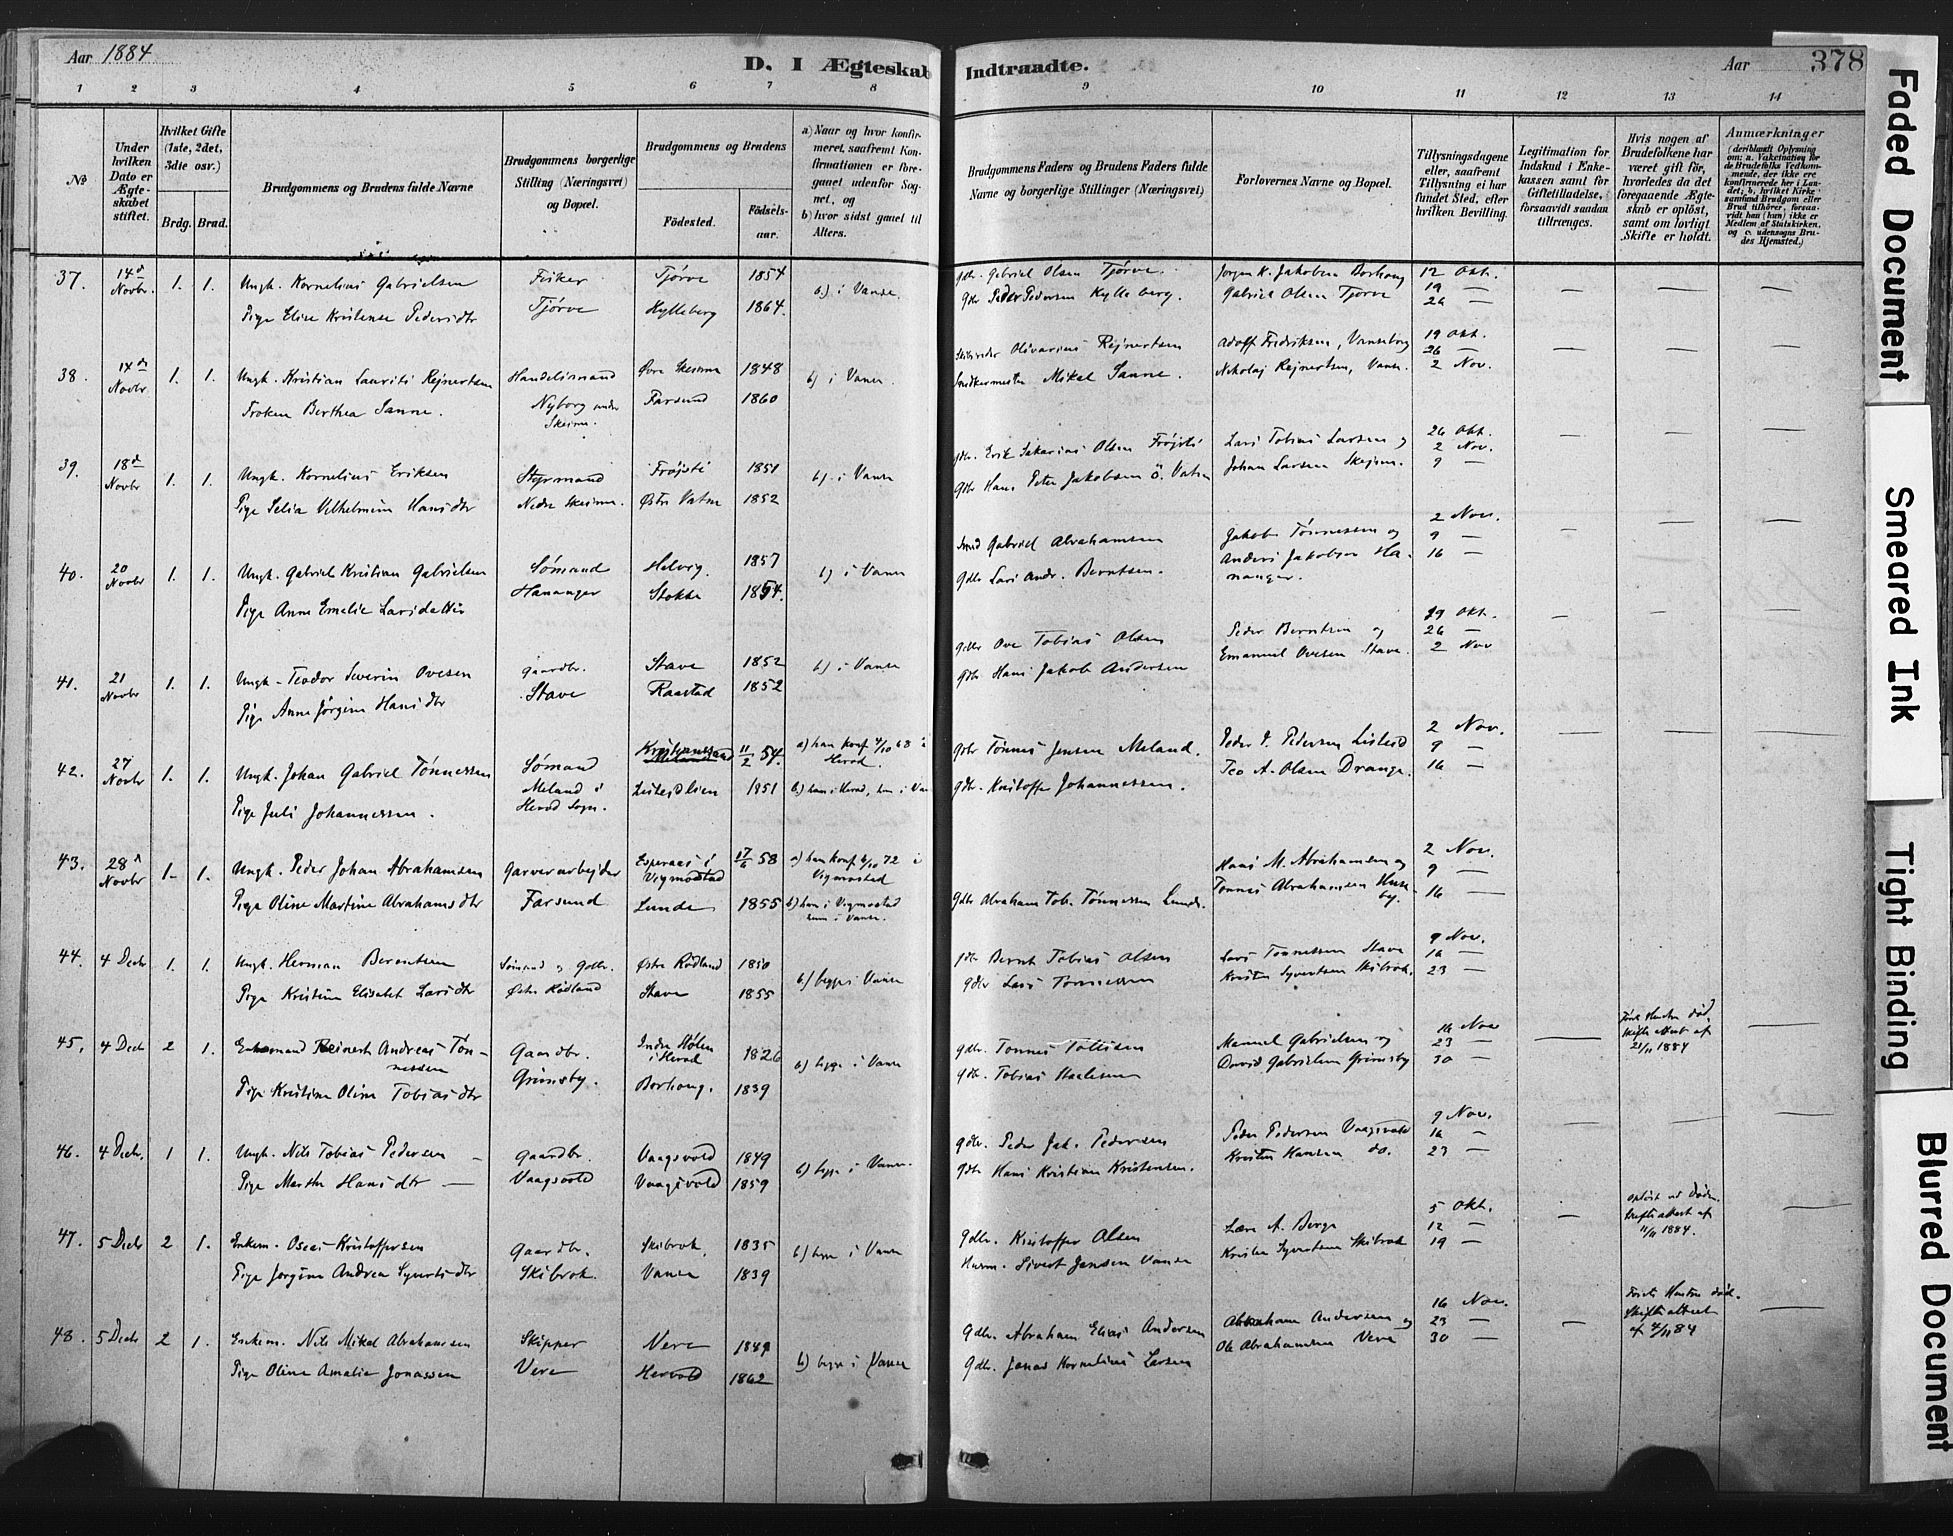 Aar 1884
D. I Ægteskab Indtraadte.
Aar
378
1 2 3 4 5 6 7 8 9 10 11 12 13 14
No
Under hvilken Dato er Ægteskabet stiftet.
Hvilket Gifte (1ste, 2det, 3die osv.)
Brdg. Brud.
Brudgommens og Brudens fulde Navne
Brudgommens borgerlige Stilling (Næringsvei) og Bopæl.
Brudgommens og Brudens
Fødested.
Fødselsaar.
a) Naar og hvor konfirmeret, saafremt Konfirmationen er foregaaet udenfor Sognet, og
b) hvor sidst gaaet til Alters.
Brudgommens Faders og Brudens Faders fulde Navne og borgerlige Stillinger (Næringsvei)
Forlovernes Navne og Bopæl.
Tillysningsdagene eller, saafremt Tillysning ei har fundet Sted, efter hvilken Bevilling.
Legitimation for Indskud i Enkekassen samt for Giftetilladelse, forsaavidt saadan tiltrænges.
Hvis nogen af Brudefolkene har været gift før, hvorledes da det foregaaende Ægteskab er opløst, samt om lovligt Skifte er holdt.
Anmærkninger
(deriblandt Oplysning om: a. Vakcination for de Brudefolks Vedkommende, der ikke ere konfirmerede her i Landet; b. hvilket Kirkesamfund Brudgom eller Brud tilhører, forsaavidt han (hun) ikke er Medlem af Statskirken, og c. udensogns Brudes Hjemsted.)
37. 14de Novbr. 1. 1. Ungk. Kornelius Gabrielsen Fisker Tjørve 1854 b) i Vanse. gdbr. Gabriel Olsen Tjørve. Jørgen K. Jakobsen Borhaug 12 Okt.
Pige Elise Kristense Pedersdtr Tjørve Kylleberg 1864. Gdbr Peder Pedersen Kylleberg. Gabriel Olsen Tjørve 19 —
26 —
38. 14de Novbr 1. 1. Ungk. Kristian Laurits Rejnertsen Handelsmand Øvre Skeime 1848 b) i Vanse Olivarius Rejnertsen Adolf Fredriksen, Vansborg 19 Okt.
26 —
Frøken Berthea Sanne. Nyborg under Skeime. Farsund 1860 Mikal Sanne. Nikolaj Rejnertsen, Vanse. 2 Nov.
39. 18de Novbr 1. 1. Ungk. Kornelius Eriksen Styrmand Frøjsti 1851 b) i Vanse gdbr. Erik Sakarias Olsen Frøjsti Lars Tobias Larsen og 26 Okt.
2 Nov.
Pige Selia Vilhelmine Hansdtr Nedre Skeime. Østre Vatne 1852 Gdbr Hans Peter Jakobsen Ö. Vatne Johan Larsen Skejme. 9 —
40. 20 Novbr 1. 1. Ungk. Gabriel Kristian Gabrielsen Sømand Helvig. 1857 b) i Vanse Gabriel Abrahamsen Jakob Tønnessen og 2 Nov.
9 —
Pige Anne Emelie Larsdatter Hananger Stokke 1854. Gdbr Lars Andr. Berntsen. Anders Jakobsen Hananger. 16 —
41. 21 Novbr 1. 1. Ungk. Teodor Severin Ovesen Gaardbr. Stave 1852 b) i Vanse gdbr Ove Tobias Olsen Peder Berntsen og 19 Okt.
26 —
Pige Anne Jørgine Hansdtr Stave Raastad 1852 gdbr Hans Jakob Andersen Emanuel Ovesen Stave. 2 Nov
42. 27 Novbr 1. 1. Ungk. Johan Gabriel Tønnessen Sømand Kristianssand 11/2 54. a) han konf 4/10 68 i Herad. gdbr Tønnes Jensen Meland. Peder P. Pedersen Listeid 2 Nov.
9 —
Pige Juli Johannessen. Meland i Herad Sogn. 1851 b) han i Herad, hun i Vanse gdbr. Kristoffer Johannessen. Teo A. Olsen Drange. 16 —
43. 28de Novbr 1. 1. Ungk. Peder Johan Abrahamsen Garverarbejder Esperaas i Vegmostad 17/6 58 a) han konf 6/10 72 i Vigmostad 
Hans M. Abrahamsen og 2 Nov.
9 —
Pige Oline Martine Abrahamsdtr Farsund Lunde 1855 b) han i Vigmostad hun i Vanse. gdbr Abraham Tob. Tønnessen Lunde. Tønnes Abrahamsen Huseby. 16 —
44. 4 Decbr 1. 1. Ungk. Herman Berntsen Sømand og Gdbr. Østre Rødland 1850 b) begge i Vanse gdbr Bernt Tobias Olsen Lars Tønnessen Stave 9 Nov.
16 —
Pige Kristine Elisabet Larsdtr Østre Rødland Stave 1855 gdbr Lars Tønnessen Kristen Syvertsen Skibrok. 23 —
45. 4 Decbr 2 1. Enkemand Reinert Andreas Tønnessen Gaardbr. Indre Hølen i Herad 1826 b) begge i Vanse gdbr. Tønnes Tollisen Manuel Gabrielsen og 16 Nov
23 —
Første Hustru død, skifteattest af 21/11 1884
Pige Kristine Oline Tobiasdtr Grimsby. Borhaug. 1839 gdbr. Tobias Staalesen David Gabrielsen Grimsby 30 —
46. 4 Decbr. 1 1. Ungk. Nils Tobias Pedersen Gaardbr. Vaagsvold 1849 b) begge i Vanse gdbr. Peder Jak. Pedersen Peder Pedersen Vaagsvold 9 Nov.
16 —
Pige Marthe Hansdtr Vaagsvold Vaagsvold 1859 gdbr Hans Kristian Kristensen. Kristen Hansen do. 23 —
47. 5 Decbr 2 1. Enkem. Oseas Kristoffersen Gaardbr. Skibrok. 1835 b) begge i Vanse gdbr. Kristoffer Olsen A. Berge 5 Okt.
12 —
opløst ved Døden. Skifteattest af 11/11 1884.
Pige Jørgine Andrea Syvertsdtr Skibrok. Vanse 1839 Husm. Sivert Jensen Vanse Kristen Syvertsen Skibrok 19 —
48. 5 Decbr 2 1. Enkem. Nils Mikal Abrahamsen Skipper Vere 1849 b) begge i Vanse gdbr. Abraham Elias Andersen Abraham Andersen og 16 Nov.
23 —
første Hustru død. Skifteattest af 4/11 84
Pige Oline Amalie Jonassen Vere Hervold 1862 gdbr. Jonas Kornelius Larsen Ole Abrahamsen Vere 30 —
Faded Document
Smeared Ink
Tight Binding
Blurred Document